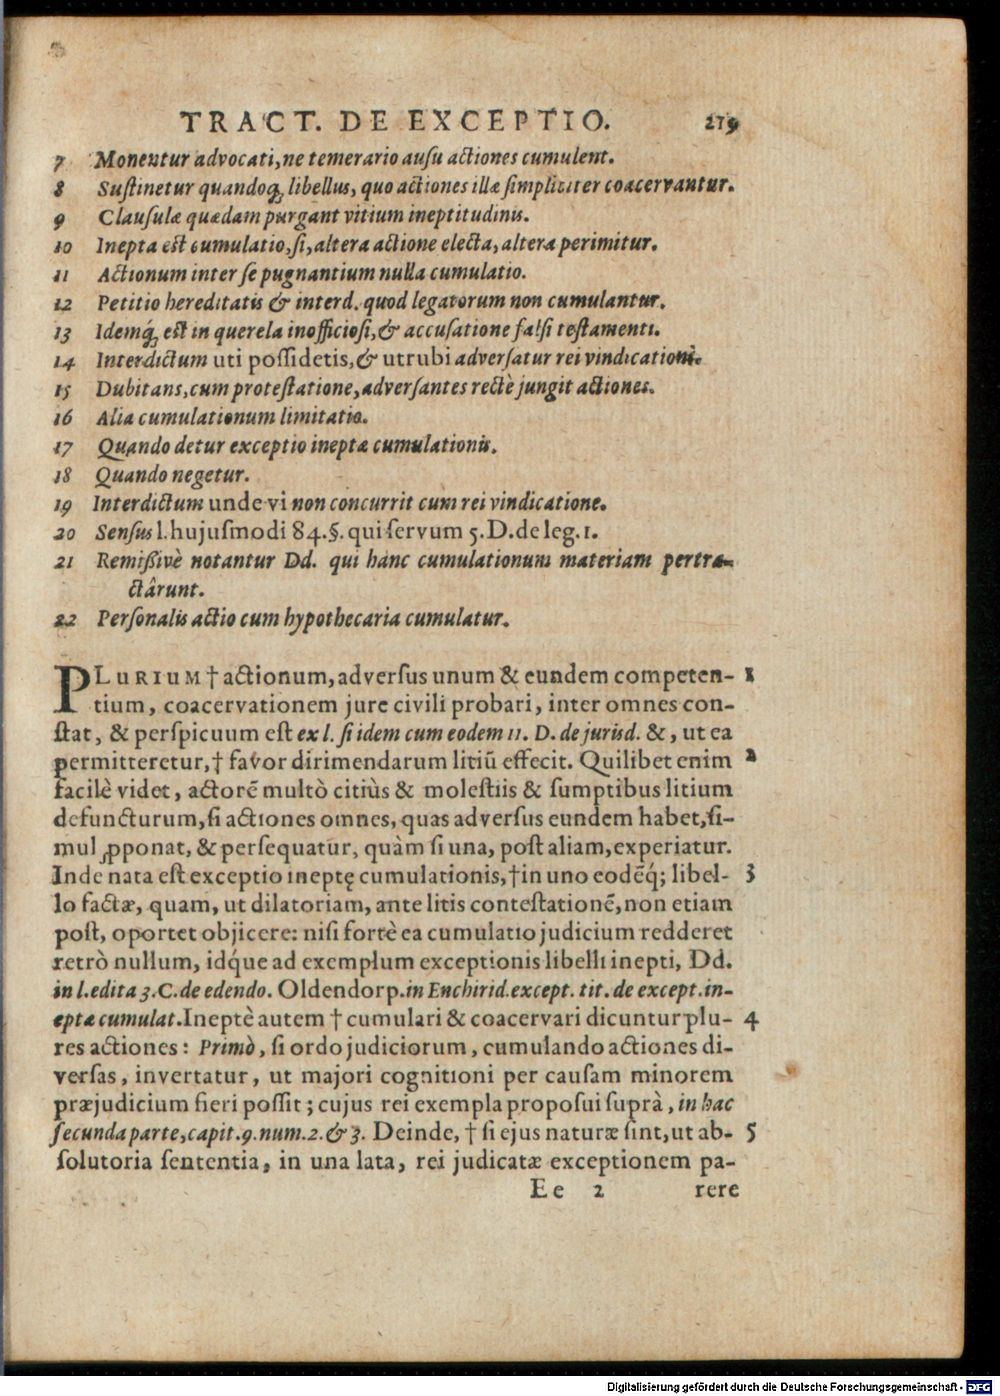 TRACT. DE EXCEPTIO. 219
7 Monentur advocati, ne temerario ausu actiones cumulent.
8 Sustinetur quandoq́; libellus, quo actiones illæ simpliciter coacervantur.
9 Clausulæ quædam purgant vitium ineptitudinis.
10 Inepta est cumulatio, si, altera actione electa, altera perimitur.
11 Actionum inter se pugnantium nulla cumulatio.
12 Petitio hereditatis & interd. quod legatorum non cumulantur.
13 Idemq́; est in querela inofficiosi, & accusatione falsi testamenti.
14 Interdictum uti possidetis, & utrubi adversatur rei vindicationi.
15 Dubitans, cum protestatione, adversantes rectè jungit actiones.
16 Alia cumulationum limitatio.
17 Quando detur exceptio ineptæ cumulationis.
18 Quando negetur.
19 Interdictum unde vi non concurrit cum rei vindicatione.
20 Sensus l. hujusmodi 84. §. qui servum 5. D. de leg. 1.
21 Remißivè notantur Dd. qui hanc cumulationum materiam pertra-
ctârunt.
22 Personalis actio cum hypothecaria cumulatur.
PLURIUM † actionum, adversus unum & eundem competen- 1
tium, coacervationem jure civili probari, inter omnes con-
stat, & perspicuum est ex l. si idem cum eodem 11. D. de jurisd. &, ut ea
permitteretur, † favor dirimendarum litiū effecit. Quilibet enim 2
facilè videt, actorē multò citiùs & molestiis & sumptibus litium
defuncturum, si actiones omnes, quas adversus eundem habet, si-
mul ꝓponat, & persequatur, quàm si una, post aliam, experiatur.
Inde nata est exceptio ineptę cumulationis, † in uno eodēq́; libel- 3
lo factæ, quam, ut dilatoriam, ante litis contestationē, non etiam
post, oportet objicere: nisi fortè ea cumulatio judicium redderet
retrò nullum, idq́ue ad exemplum exceptionis libelli inepti, Dd.
in l. edita 3. C. de edendo. Oldendorp. in Enchirid. except. tit. de except. in-
eptæ cumulat. Ineptè autem † cumulari & coacervari dicuntur plu- 4
res actiones: Primò, si ordo judiciorum, cumulando actiones di-
versas, invertatur, ut majori cognitioni per causam minorem
præjudicium fieri possit; cujus rei exempla proposui suprà, in hac
secunda parte, capit. 9. num. 2. & 3. Deinde, † si ejus naturæ sint, ut ab- 5
solutoria sententia, in una lata, rei judicatæ exceptionem pa-
Ee 2 rere
Digitalisierung gefördert durch die Deutsche Forschungsgemeinschaft - DFG